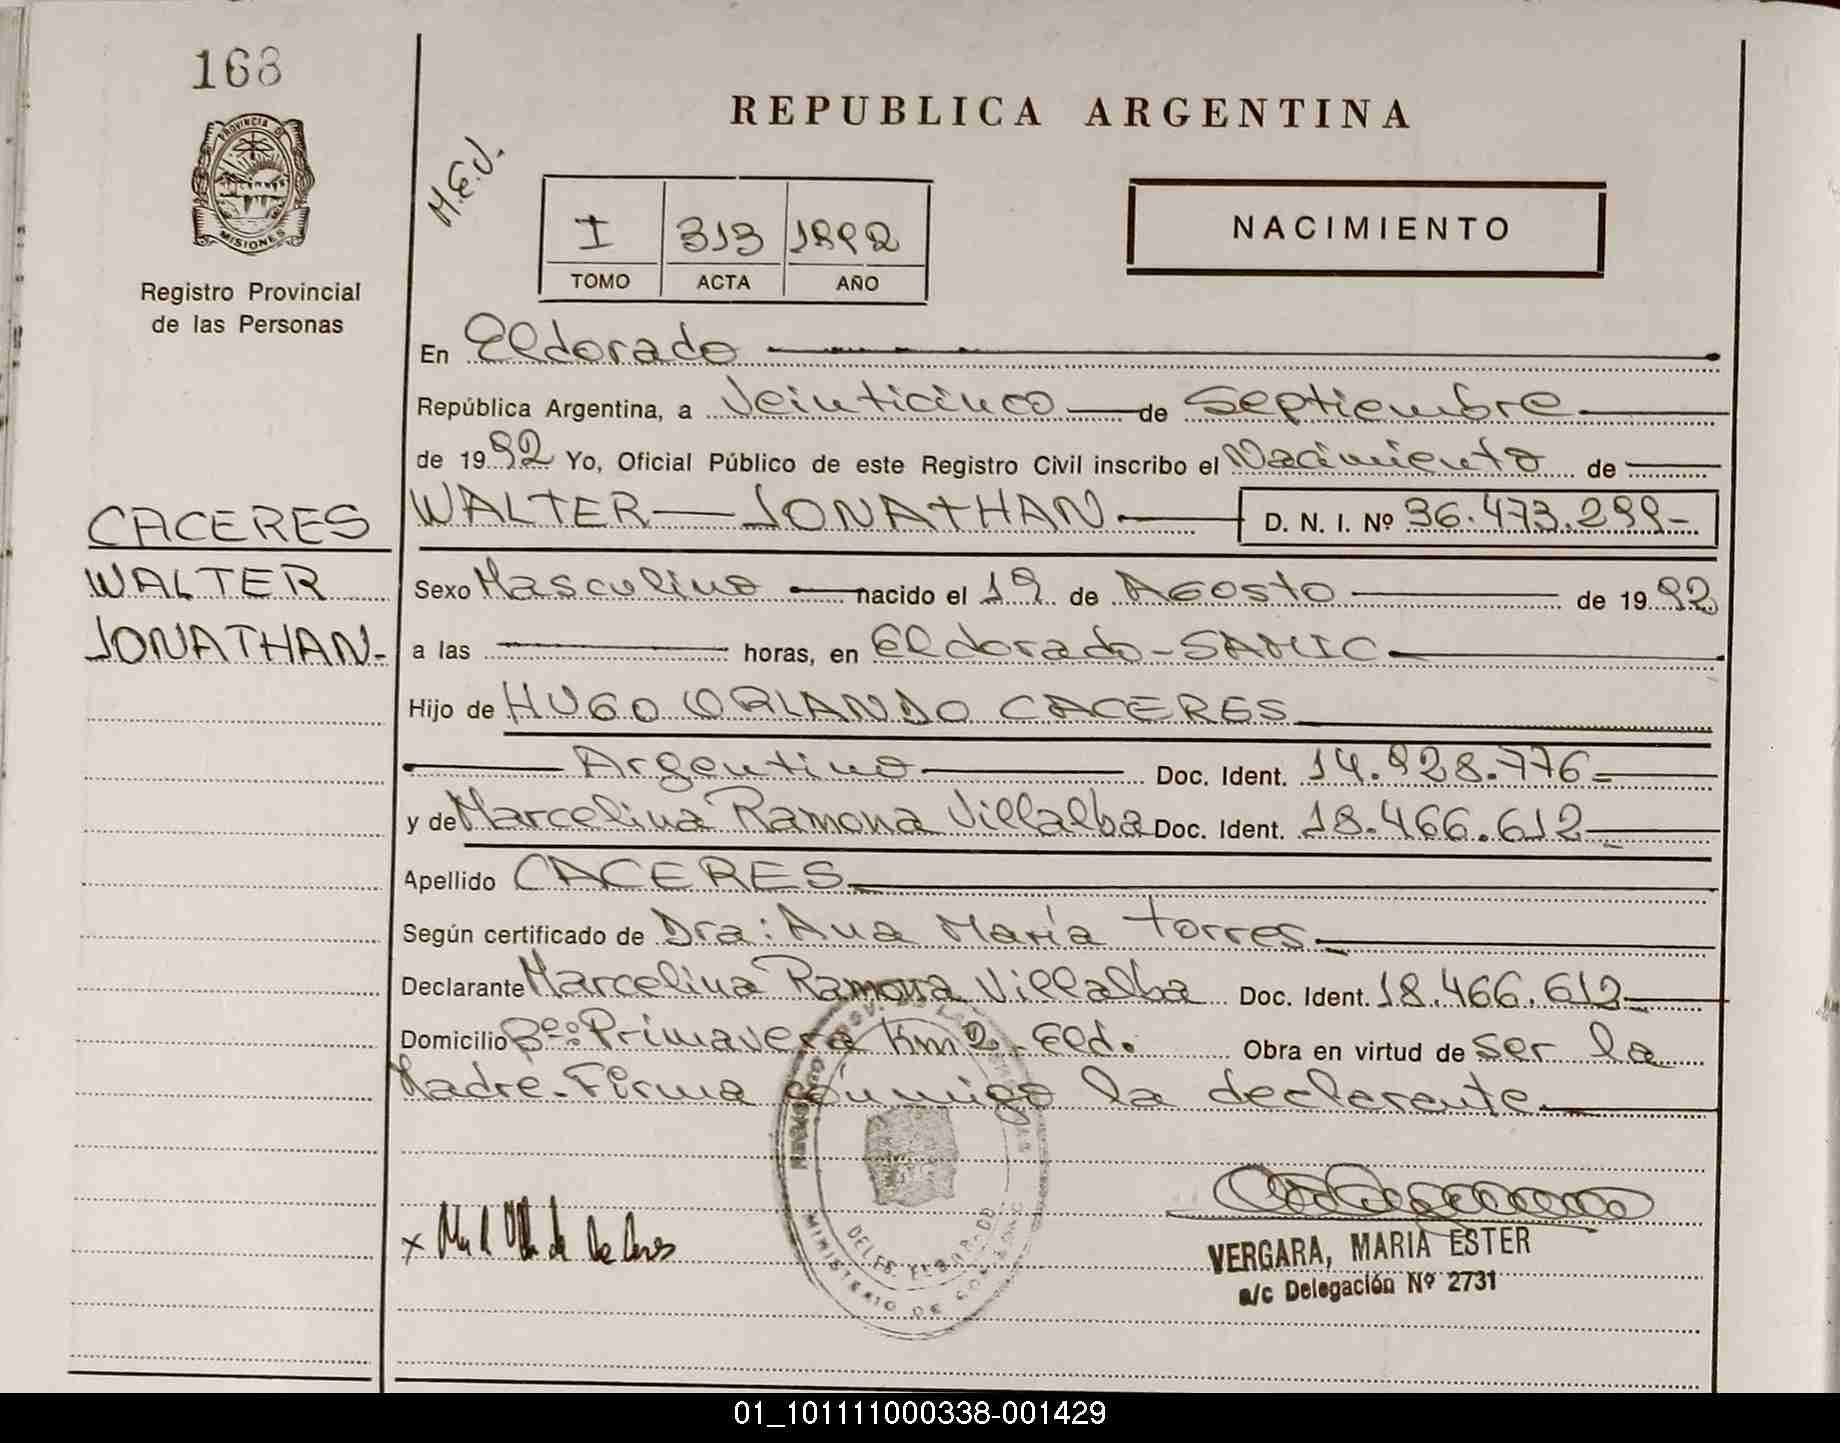 168
PROVINCIA DE
MISIONES
Registro Provincial
de las Personas
CACERES
WALTER
JONATHAN-
REPUBLICA ARGENTINA
M.E.J.
I 313 1992
TOMO ACTA AÑO
NACIMIENTO
En Eldorado
República Argentina, a Veinticinco de Septiembre
de 1992 Yo, Oficial Público de este Registro Civil inscribo el Nacimiento de
WALTER JONATHAN D. N. I. Nº 36.473.299-
Sexo Masculino nacido el 19 de Agosto de 1992
a las horas, en Eldorado-SAMIC
Hijo de HUGO ORLANDO CACERES
Argentino Doc. Ident. 14.928.776=
y de Marcelina Ramona Villalba Doc. Ident. 18.466.612
Apellido CACERES
Según certificado de Dra: Ana María Torres
Declarante Marcelina Ramona Villalba Doc. Ident. 18.466.612
Domicilio Bº: Primavera Km 2 - Eld. Obra en virtud de ser la
Madre-Firma conmigo la declarente
DELEG. ELDORADO
MINISTERIO DE GOBIERNO
VERGARA, MARIA ESTER
a/c Delegación Nº 2731
01_101111000338-001429